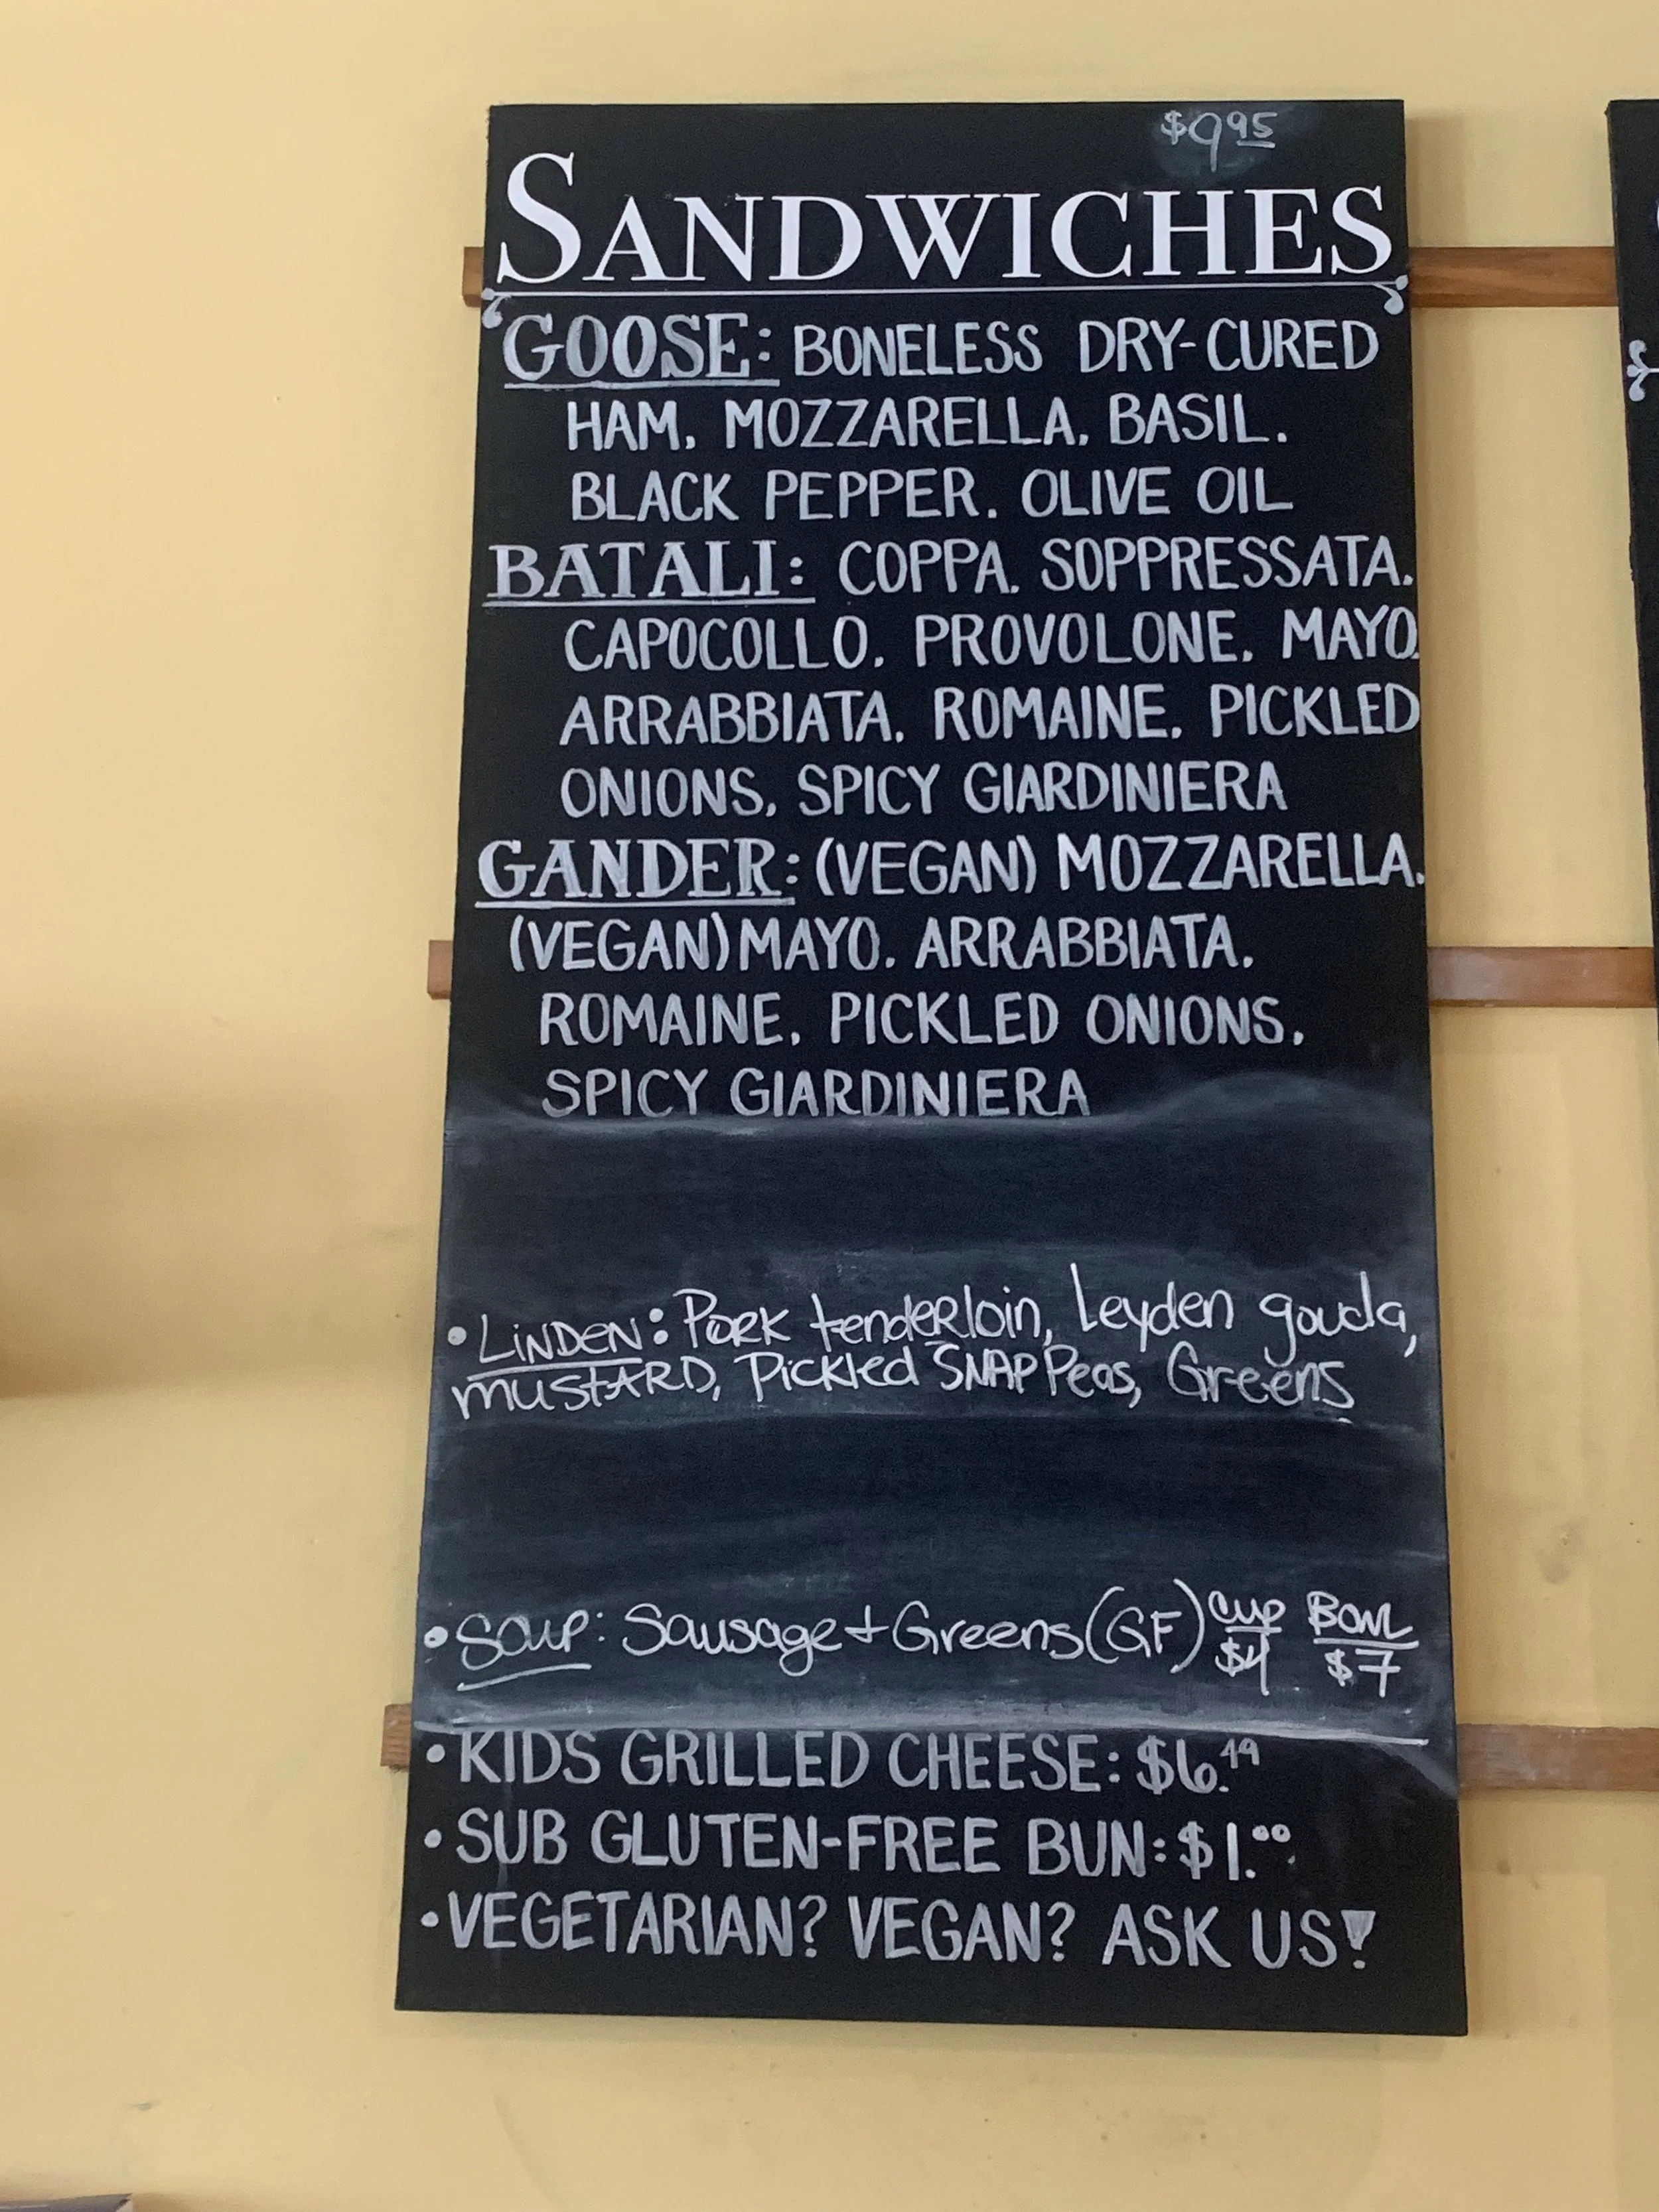 $9.95
SANDWICHES
GOOSE: BONELESS DRY-CURED
HAM, MOZZARELLA, BASIL,
BLACK PEPPER, OLIVE OIL
BATALI: COPPA, SOPPRESSATA,
CAPOCOLLO, PROVOLONE, MAYO,
ARRABBIATA, ROMAINE, PICKLED
ONIONS, SPICY GIARDINIERA
GANDER: (VEGAN) MOZZARELLA,
(VEGAN) MAYO, ARRABBIATA,
ROMAINE, PICKLED ONIONS,
SPICY GIARDINIERA
• LINDEN: PORK tenderloin, Leyden gouda,
MUSTARD, Pickled SNAP Peas, Greens
• Soup: Sausage + Greens (GF) Cup $4 BOWL $7
• KIDS GRILLED CHEESE: $6.49
• SUB GLUTEN-FREE BUN: $1.00
• VEGETARIAN? VEGAN? ASK US!